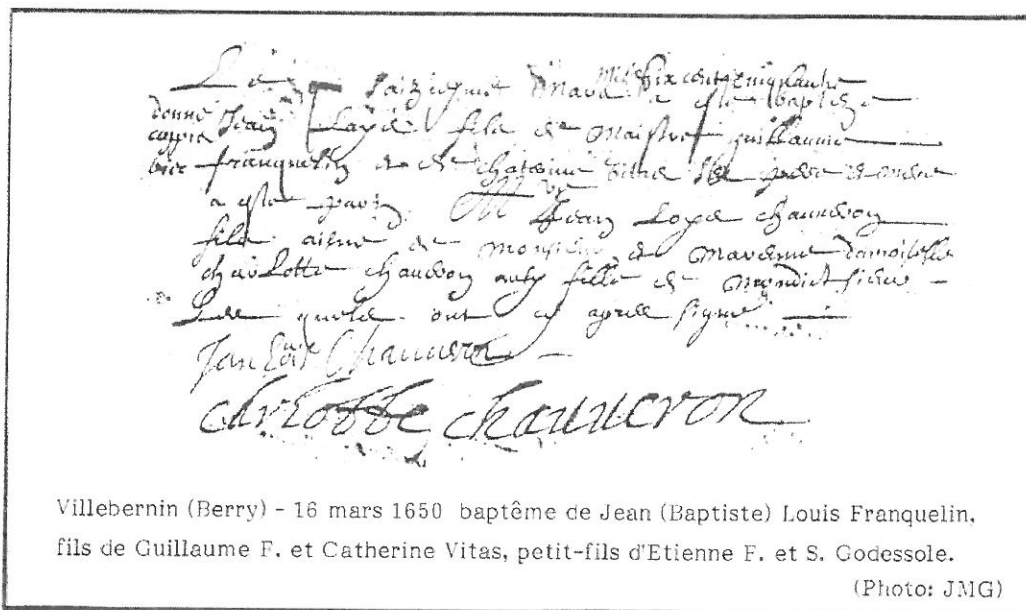 Le saiziesme Mars Mil six cent cinquante
a este baptize
donné Jean Loys fils de Maistre guillaume
coppie
franquelin et de catherine ses pere et mere
a este parin Mre Jean Loys chauveron
fils aisne de monsieur et mareinne damoiselle
charlotte chauveron aussy fille de mondict sieur
Les quels ont cy apres signe
Jan Loüis Chauveron
charlotte chauueron
Villebernin (Berry) - 16 mars 1650 baptême de Jean (Baptiste) Louis Franquelin,
fils de Guillaume F. et Catherine Vitas, petit-fils d'Etienne F. et S. Godessole.
(Photo: JMG)